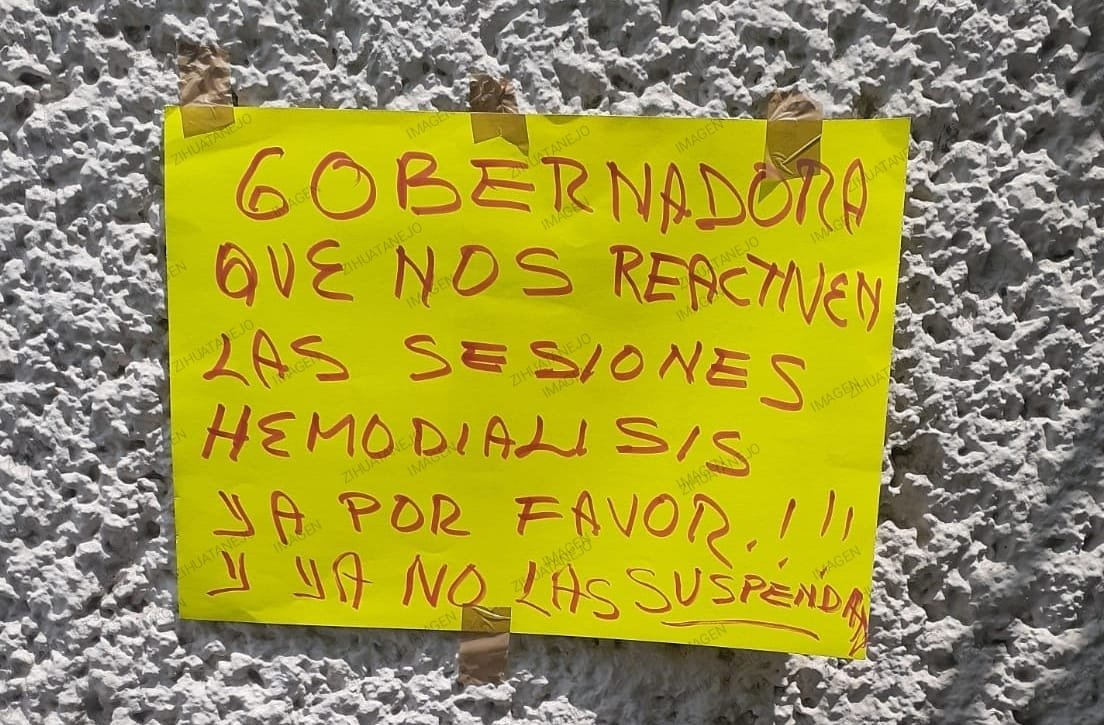 GOBERNADORA
QUE NOS REACTIVEN
LAS SESIONES
HEMODIALISIS
YA POR FAVOR.!!!
Y YA NO LAS SUSPENDAN
IMAGEN ZIHUATANEJO